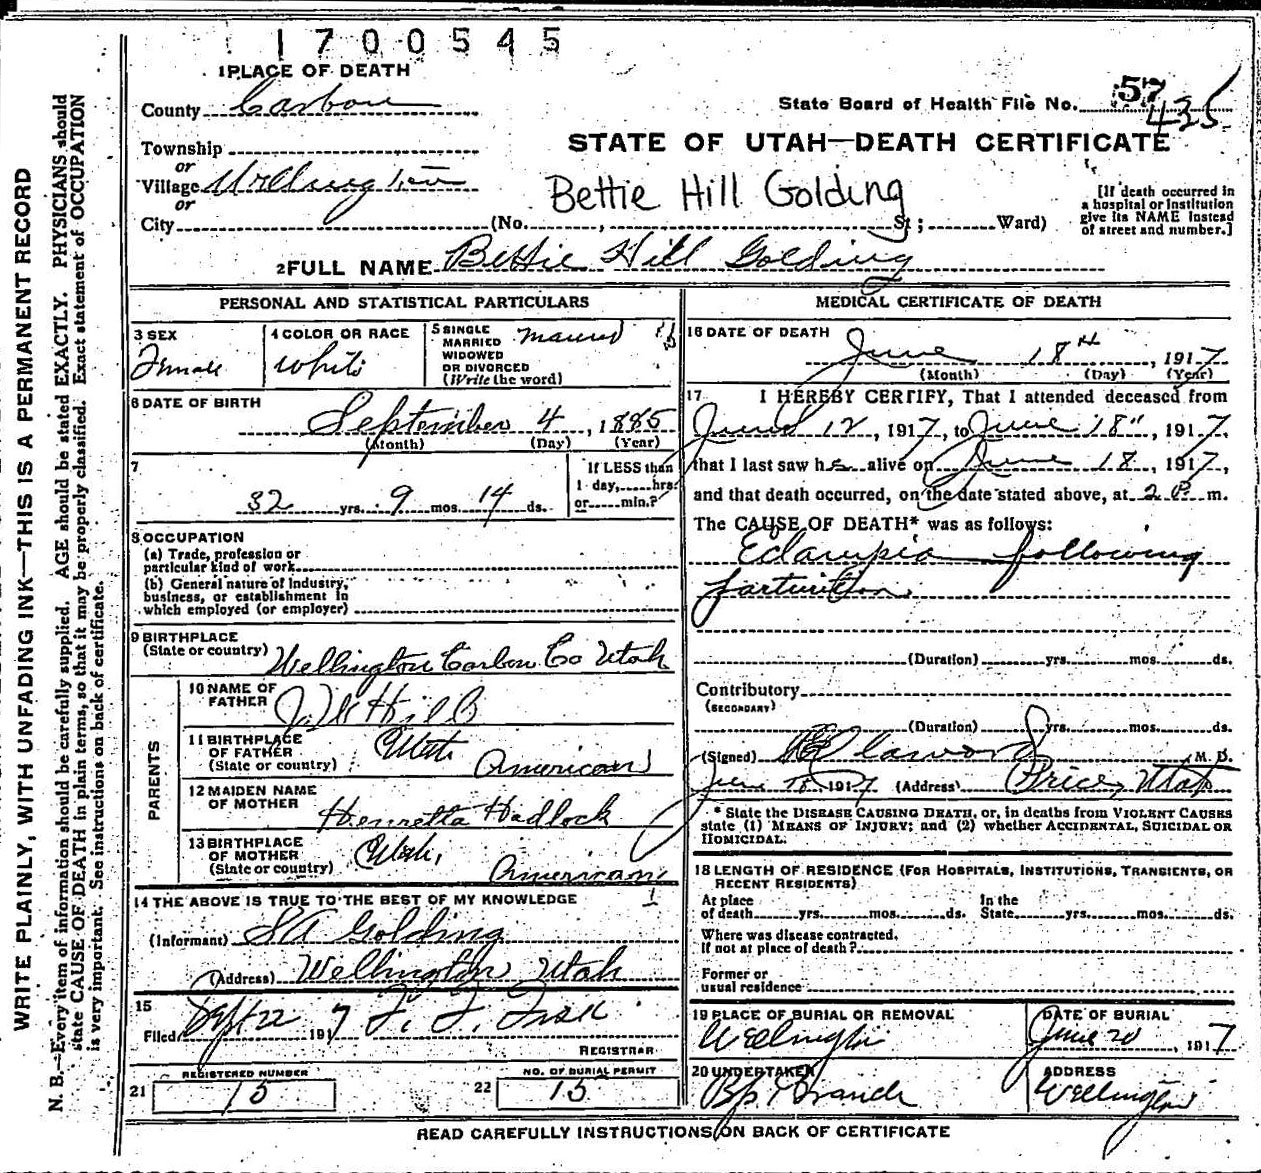 1700545
1 PLACE OF DEATH
County Carbon
State Board of Health File No. 57
435
STATE OF UTAH—DEATH CERTIFICATE
Township
or
Village Wellington
or
City (No. , St; Ward)
Bettie Hill Golding
[If death occurred in
a hospital or institution
give its NAME instead
of street and number.]
2 FULL NAME Bettie Hill Golding
PERSONAL AND STATISTICAL PARTICULARS
3 SEX
Female
4 COLOR OR RACE
White
5 SINGLE
MARRIED
WIDOWED
OR DIVORCED
(Write the word)
married
6 DATE OF BIRTH
September 4, 1885
(Month) (Day) (Year)
7
32 yrs. 9 mos. 14 ds.
If LESS than
1 day, hrs.
or min.?
8 OCCUPATION
(a) Trade, profession or
particular kind of work
(b) General nature of industry,
business, or establishment in
which employed (or employer)
9 BIRTHPLACE
(State or country) Wellington Carbon Co Utah
PARENTS
10 NAME OF
FATHER
Hill
11 BIRTHPLACE
OF FATHER
(State or country)
Utah
American
12 MAIDEN NAME
OF MOTHER
Henretta Hadlock
13 BIRTHPLACE
OF MOTHER
(State or country)
Utah,
American
14 THE ABOVE IS TRUE TO THE BEST OF MY KNOWLEDGE
(Informant) S A Golding
(Address) Wellington Utah
15
Filed Sept 22 1917
REGISTRAR
REGISTERED NUMBER
21 15
NO. OF BURIAL PERMIT
22 15
MEDICAL CERTIFICATE OF DEATH
16 DATE OF DEATH
June 18th, 1917
(Month) (Day) (Year)
17 I HEREBY CERTIFY, That I attended deceased from
June 12, 1917, to June 18", 1917,
that I last saw h alive on June 18, 1917,
and that death occurred, on the date stated above, at 2 P. m.
The CAUSE OF DEATH* was as follows:
Eclampsia following
parturition
(Duration) yrs. mos. ds.
Contributory
(SECONDARY)
(Duration) yrs. mos. ds.
(Signed) M. D.
June 1917 (Address) Price, Utah
* State the DISEASE CAUSING DEATH, or, in deaths from VIOLENT CAUSES
state (1) MEANS OF INJURY; and (2) whether ACCIDENTAL, SUICIDAL OR
HOMICIDAL.
18 LENGTH OF RESIDENCE (FOR HOSPITALS, INSTITUTIONS, TRANSIENTS, OR
RECENT RESIDENTS)
At place
of death yrs. mos. ds.
In the
State yrs. mos. ds.
Where was disease contracted.
If not at place of death?
Former or
usual residence
19 PLACE OF BURIAL OR REMOVAL
Wellington
DATE OF BURIAL
June 20, 1917
20 UNDERTAKER
ADDRESS
Wellington
READ CAREFULLY INSTRUCTIONS ON BACK OF CERTIFICATE
WRITE PLAINLY, WITH UNFADING INK—THIS IS A PERMANENT RECORD
N. B.—Every item of information should be carefully supplied. AGE should be stated EXACTLY. PHYSICIANS should
state CAUSE OF DEATH in plain terms, so that it may be properly classified. Exact statement of OCCUPATION
is very important. See instructions on back of certificate.